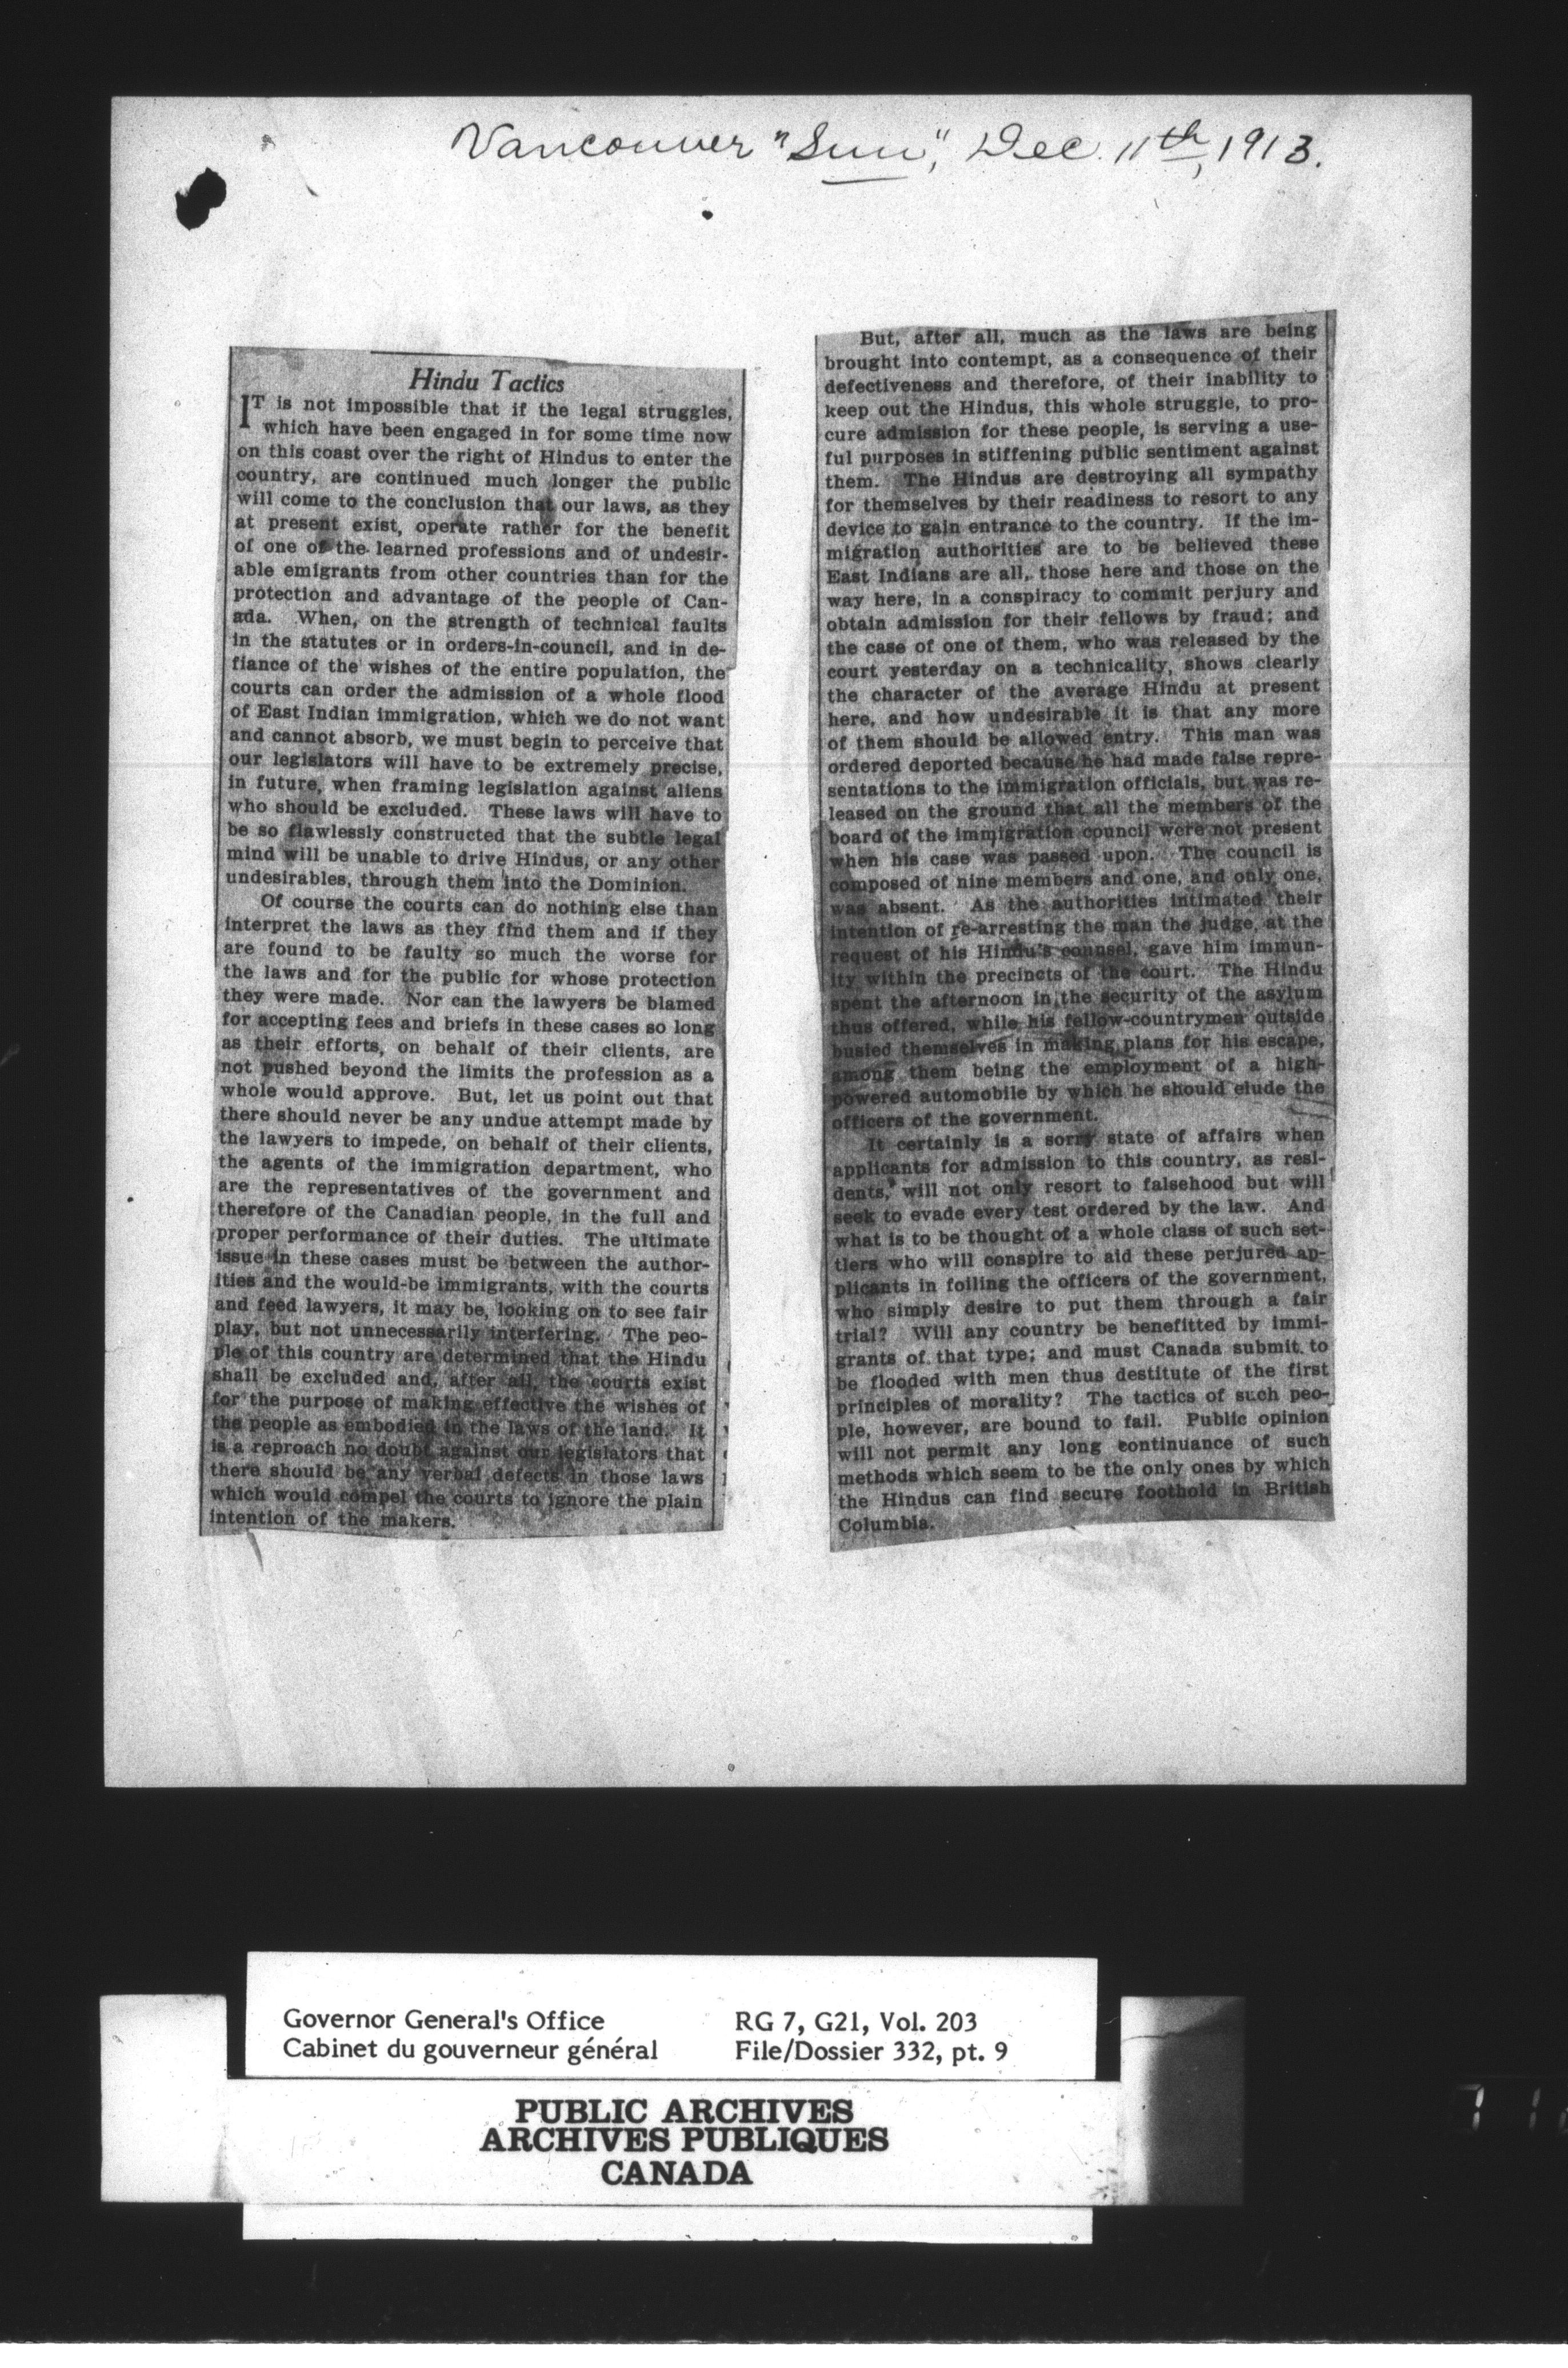 Vancouver "Sun", Dec. 11th, 1913.
Hindu Tactics
IT is not impossible that if the legal struggles,
which have been engaged in for some time now
on this coast over the right of Hindus to enter the
country, are continued much longer the public
will come to the conclusion that our laws, as they
at present exist, operate rather for the benefit
of one of the learned professions and of undesir-
able emigrants from other countries than for the
protection and advantage of the people of Can-
ada. When, on the strength of technical faults
in the statutes or in orders-in-council, and in de-
fiance of the wishes of the entire population, the
courts can order the admission of a whole flood
of East Indian immigration, which we do not want
and cannot absorb, we must begin to perceive that
our legislators will have to be extremely precise,
in future, when framing legislation against aliens
who should be excluded. These laws will have to
be so flawlessly constructed that the subtle legal
mind will be unable to drive Hindus, or any other
undesirables, through them into the Dominion.
Of course the courts can do nothing else than
interpret the laws as they find them and if they
are found to be faulty so much the worse for
the laws and for the public for whose protection
they were made. Nor can the lawyers be blamed
for accepting fees and briefs in these cases so long
as their efforts, on behalf of their clients, are
not pushed beyond the limits the profession as a
whole would approve. But, let us point out that
there should never be any undue attempt made by
the lawyers to impede, on behalf of their clients,
the agents of the immigration department, who
are the representatives of the government and
therefore of the Canadian people, in the full and
proper performance of their duties. The ultimate
issue in these cases must be between the author-
ities and the would-be immigrants, with the courts
and feed lawyers, it may be, looking on to see fair
play, but not unnecessarily interfering. The peo-
ple of this country are determined that the Hindu
shall be excluded and, after all, the courts exist
for the purpose of making effective the wishes of
the people as embodied in the laws of the land. It
is a reproach no doubt against our legislators that
there should be any verbal defects in those laws
which would compel the courts to ignore the plain
intention of the makers.
But, after all, much as the laws are being
brought into contempt, as a consequence of their
defectiveness and therefore, of their inability to
keep out the Hindus, this whole struggle, to pro-
cure admission for these people, is serving a use-
ful purposes in stiffening public sentiment against
them. The Hindus are destroying all sympathy
for themselves by their readiness to resort to any
device to gain entrance to the country. If the im-
migration authorities are to be believed these
East Indians are all, those here and those on the
way here, in a conspiracy to commit perjury and
obtain admission for their fellows by fraud; and
the case of one of them, who was released by the
court yesterday on a technicality, shows clearly
the character of the average Hindu at present
here, and how undesirable it is that any more
of them should be allowed entry. This man was
ordered deported because he had made false repre-
sentations to the immigration officials, but was re-
leased on the ground that all the members of the
board of the immigration council were not present
when his case was passed upon. The council is
composed of nine members and one, and only one,
was absent. As the authorities intimated their
intention of re-arresting the man the judge, at the
request of his Hindu's counsel, gave him immun-
ity within the precincts of the court. The Hindu
spent the afternoon in the security of the asylum
thus offered, while his fellow-countrymen outside
busied themselves in making plans for his escape,
among them being the employment of a high-
powered automobile by which he should elude the
officers of the government.
It certainly is a sorry state of affairs when
applicants for admission to this country, as resi-
dents, will not only resort to falsehood but will
seek to evade every test ordered by the law. And
what is to be thought of a whole class of such set-
tlers who will conspire to aid these perjured ap-
plicants in foiling the officers of the government,
who simply desire to put them through a fair
trial? Will any country be benefitted by immi-
grants of that type; and must Canada submit to
be flooded with men thus destitute of the first
principles of morality? The tactics of such peo-
ple, however, are bound to fail. Public opinion
will not permit any long continuance of such
methods which seem to be the only ones by which
the Hindus can find secure foothold in British
Columbia.
Governor General's Office RG 7, G21, Vol. 203
Cabinet du gouverneur général File/Dossier 332, pt. 9
PUBLIC ARCHIVES
ARCHIVES PUBLIQUES
CANADA